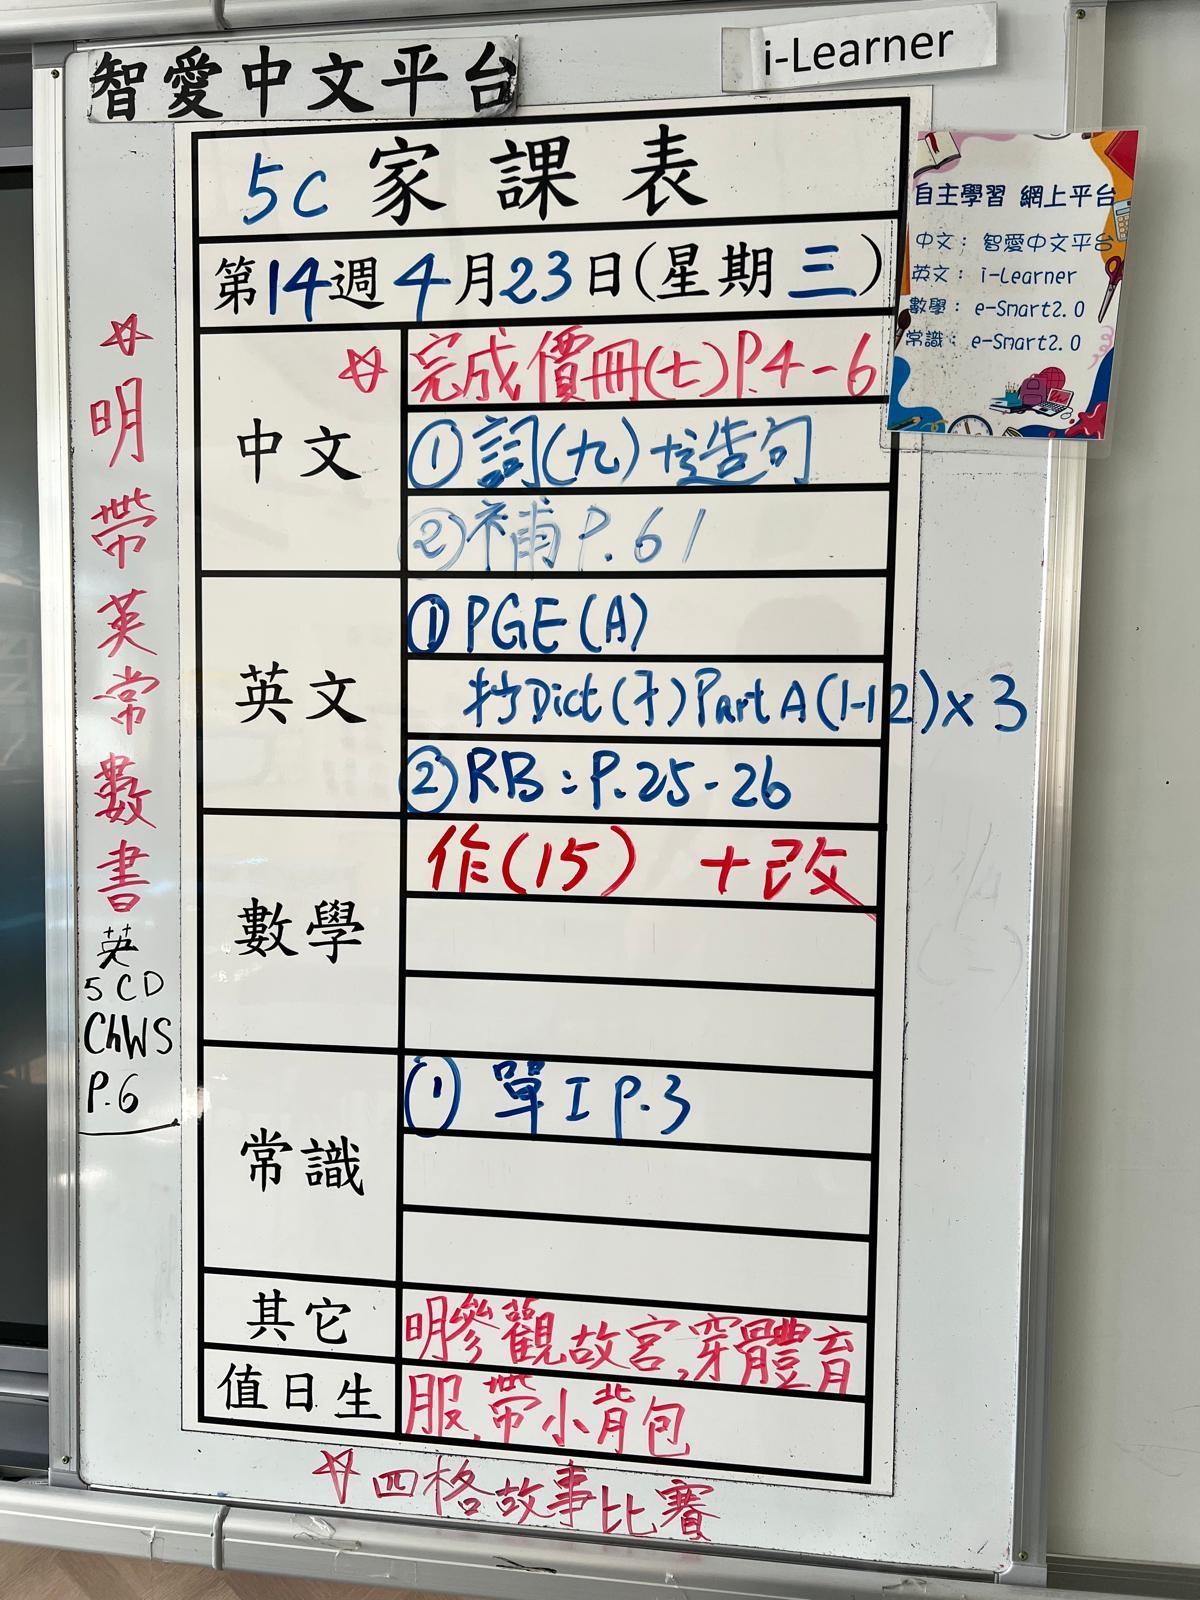 智愛中文平台
i-Learner
5C 家課表
第14週 4月23日(星期三)
中文
☆ 完成價冊(七)P.4-6
① 詞(九)+造句
② 補P.61
英文
① PGE(A)
抄Dict(才)Part A(1-12)x3
② RB:P.25-26
數學
作(15) +改
常識
① 單I P.3
其它
明參觀故宮,穿體育
值日生
服,帶小背包
☆四格故事比賽
☆明帶英常數書
英
5CD
ChWS
P.6
自主學習 網上平台
中文: 智愛中文平台
英文: i-Learner
數學: e-Smart2.0
常識: e-Smart2.0